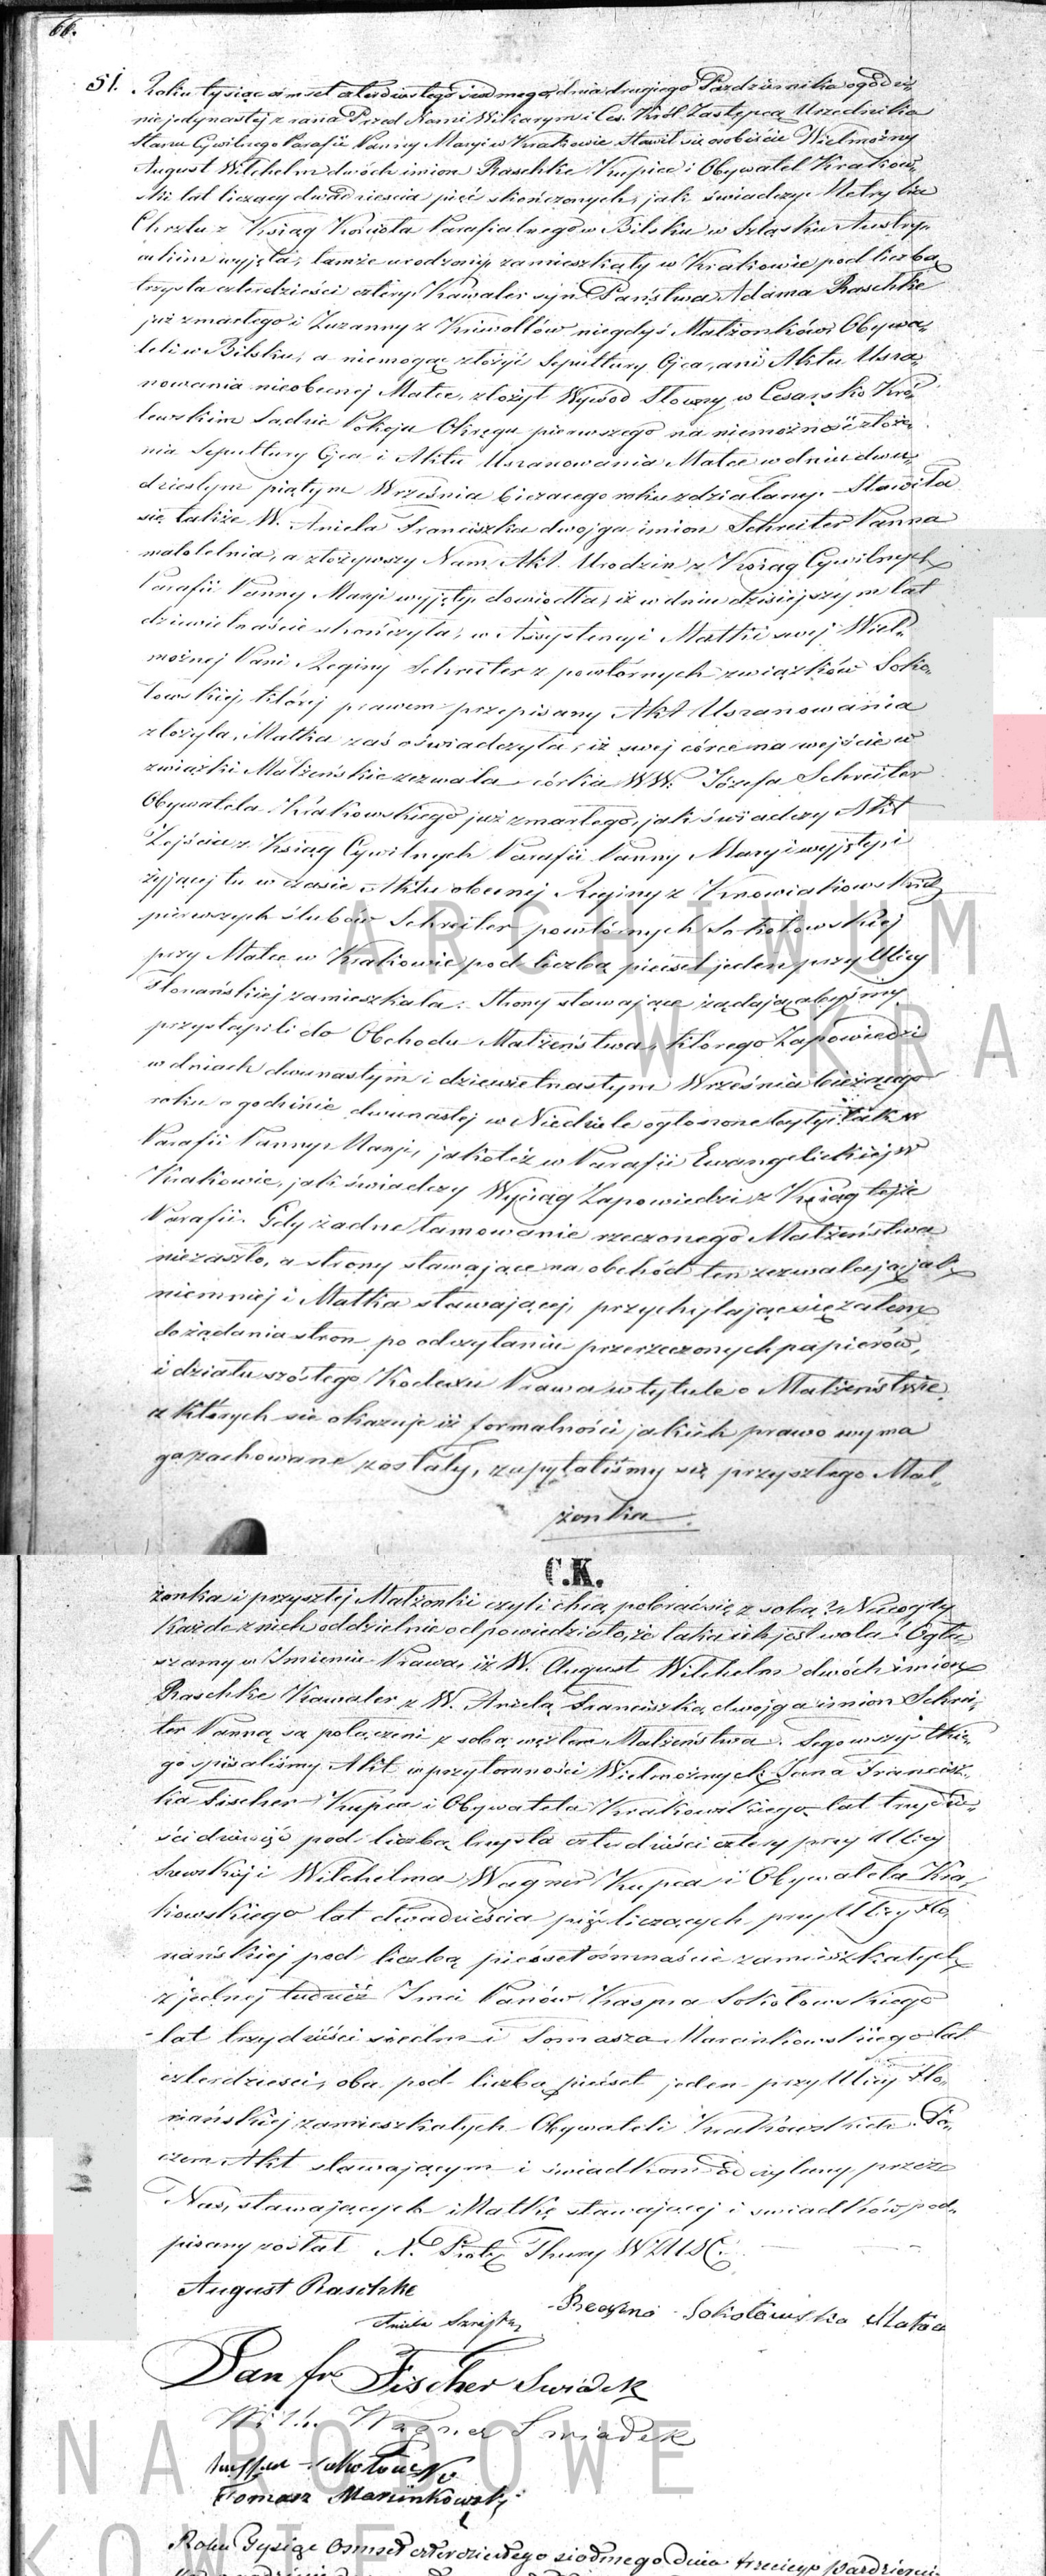 66.
51. Roku tysiąc ośmset czterdziestego siódmego dnia drugiego Października o godzi-
nie jedynastej z rana Przed Nami Wikarym i Ces. Król. Zastępcą Urzędnika
Stanu Cywilnego Parafii Panny Maryi w Krakowie Stawił się osobiście Wielmożny
August Wilchelm dwóch imion Raschke Kupiec i Obywatel Krakow-
ski lat liczący dwadzieścia pięć skończonych, jak świadczy Metryka
Chrztu z Ksiąg Kościoła Parafialnego w Bilsku w Szląsku Austry-
ackim wyjęta, tamże urodzony, zamieszkały w Krakowie pod liczbą
trzysta czterdzieści cztery, Kawaler syn Państwa Adama Raschke
już zmarłego i Zuzanny z niegdyś Małżonków Obywa-
teli w Bilsku, a niemogąc złożyć Sepultury Ojca, ani Aktu Usza-
nowania nieobecnej Matce, złożył Wywód Słowny w Cesarsko Kró-
lewskim Sądzie Pokoju Okręgu pierwszego na niemożność złoże-
nia Sepultury Ojca i Aktu Uszanowania Matce w dniu dwu-
dziestym piątym Września bieżącego roku zdziałany. Stawiła
się także W. Aniela Franciszka dwojga imion Schreiter Panna
małoletnia, a złożywszy Nam Akt Urodzin z Ksiąg Cywilnych
Parafii Panny Maryi wyjęty, dowiodła, iż w dniu dzisiejszym lat
dziewietnaście skończyła, w Assystencyi Matki swej Wiel-
możnej Pani Reginy Schreiter z powtórnych związków Soko-
łowskiej, której prawem przepisany Akt Uszanowania
złożyła, Matka zaś oświadczyła, iż swej córce na wejście w
związki Małżeńskie zezwala – córka WW. Józefa Schreiter
Obywatela Krakowskiego już zmarłego, jak świadczy Akt
Zejścia z Ksiąg Cywilnych Parafii Panny Maryi wyjęty i
żyjącej tu w czasie Aktu obecnej Reginy z
pierwszych ślubów Schreiter powtórnych Sokołowskiej
przy Matce w Krakowie pod liczbą pięćset jeden przy Ulicy
Floriańskiej zamieszkała. Strony stawające żądają abyśmy
przystąpili do Obchodu Małżeństwa, którego Zapowiedzi
w dniach dwunastym i dziewietnastym Września bieżącego
roku o godzinie dwunastej w Niedziele ogłoszone były tak w
Parafii Panny Maryi, jakoteż w Parafii Ewangelickiej w
Krakowie, jak świadczy Wyciąg Zapowiedzi z Ksiąg tejże
Parafii. Gdy żadne tamowanie rzeczonego Małżeństwa
niezaszło, a strony stawające na obchód ten zezwalają, jak
niemniej i Matka stawającej, przychylając się zatem
do żądania stron po odczytaniu przerzeczonych papierów,
i działu szóstego Kodexu Prawa w tytule o Małżeństwie,
z których się okazuje iż formalności jakich prawo wyma
ga zachowane zostały, zapytaliśmy się przyszłego Mał-
żonka
C.K.
żonka i przyszłej Małżonki czyli chcą pobrać się z sobą? Na co gdy
każde z nich oddzielnie odpowiedziało, że taka ich jest wola. Ogła-
szamy w Imieniu Prawa, iż W. August Wilchelm dwóch imion
Raschke Kawaler z W. Anielą Franciszką dwojga imion Schrei-
ter Panną są połączeni z sobą węzłem Małżeństwa. Tego wszystkie-
go spisaliśmy Akt w przytomności Wielmożnych Jana Francisz-
ka Fischer Kupca i Obywatela Krakowskiego lat trzydzie-
ści dziewięć pod liczbą trzysta czterdzieści cztery przy Ulicy
Szewskiej i Wilchelma Wagner Kupca i Obywatela Kra-
kowskiego lat dwadzieścia pięć liczących, przy Ulicy Flo-
riańskiej pod liczbą pięćset ośmnaście zamieszkałych
z jednej tudzież Imci Panów Kaspra Sokołowskiego
lat trzydzieści siedm i Tomasza Marcinkowskiego lat
czterdzieści, oba pod liczbą pięćset jeden przy Ulicy Flo-
riańskiej zamieszkałych Obywateli Krakowskich. Po-
czem Akt stawającym i świadkom odczytany, przez
Nas, stawających i Matkę stawającej i świadków pod-
pisany został. X. Thury
August Raschke
Regina Sokołowska Matka
Aniela
Jan fr. Fischer Swiadek
Wilh. Wagner Swiadek
Sokołowski
Tomasz Marcinkowski
Roku Tysiąc Osmset czterdziestego siódmego Dnia trzeciego pazdzierni-
ARCHIWUM
W KRA
NARODOWE
KOWIE